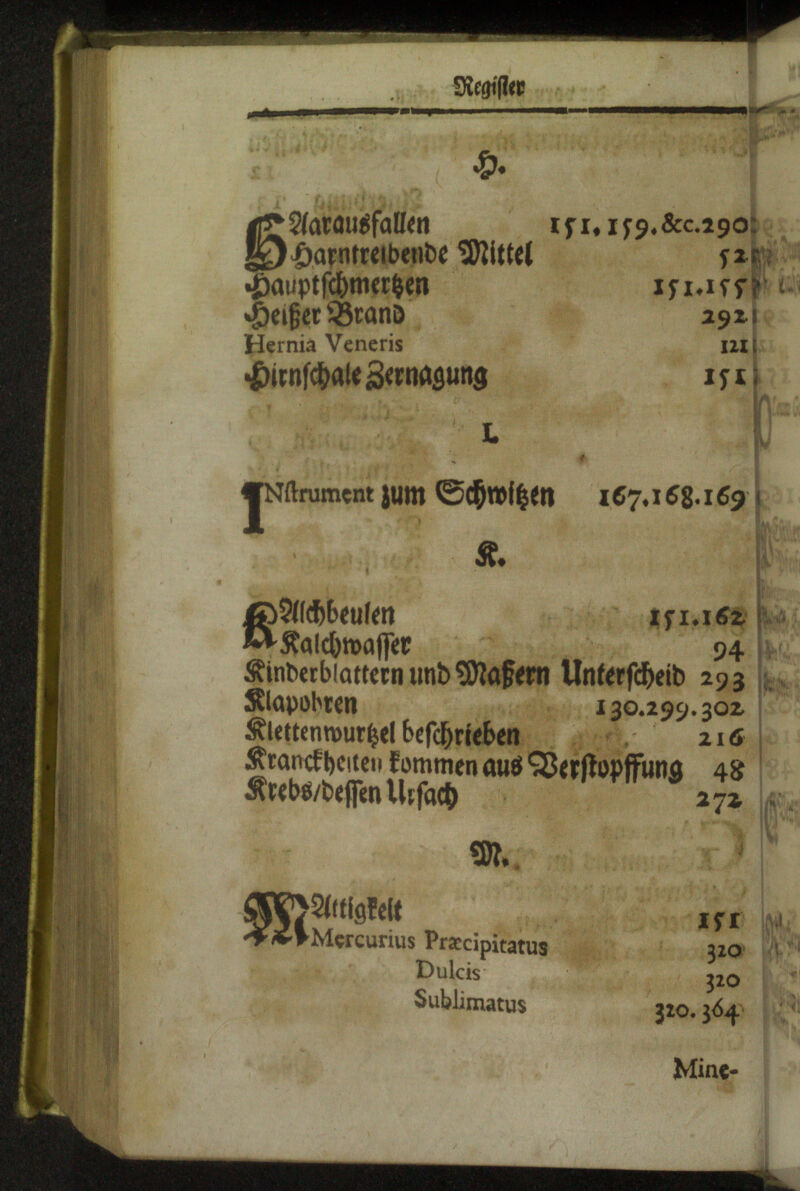 Register
H.
HAarausfallen 151. 159. &c. 290
Harntreibende Mittel 52
Hauptschmertzen 151. 155
Heißer Brand 292
Hernia Veneris 121
Hirnschale Zernagung 151
I.
INstrument zum Schwitzen 167. 168. 169
K.
KAlchbeulen 151. 162
Kalchwasser 94
Kinderblattern und Masern Unterscheid 293
Klapohren 130. 299. 302
Klettenwurtzel beschrieben 216
Kranckheiten kommen aus Verstopffung 48
Krebs/dessen Ursach 272
M.
MAttigkeit 151
Mercurius Præcipitatus 320
Dulcis 320
Sublimatus 320. 364
Mine-